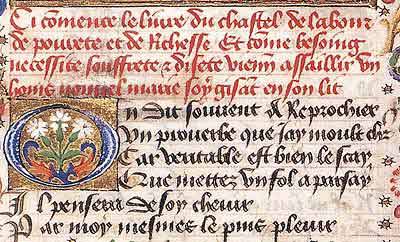 Ci comence le livre du chastel de labour
de pourete et de Richesse Et come besoing
necessite souffrete & disete vienn assaillir vn
home nouuel marie soy gisat en son lit
On dit souuent & Reprochier
Vn prouerbe que jay moult chr
Car veritable est bien le scay
Que mettez vn fol a par say
Il pensera de soy cheuir
Par moy mesmes le puis pleuir